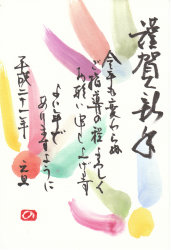 謹賀新年
今年も変わらぬ
ご指導の程よろしく
お願い申し上げます
よい年で
ありますように
平成二十一年 元旦